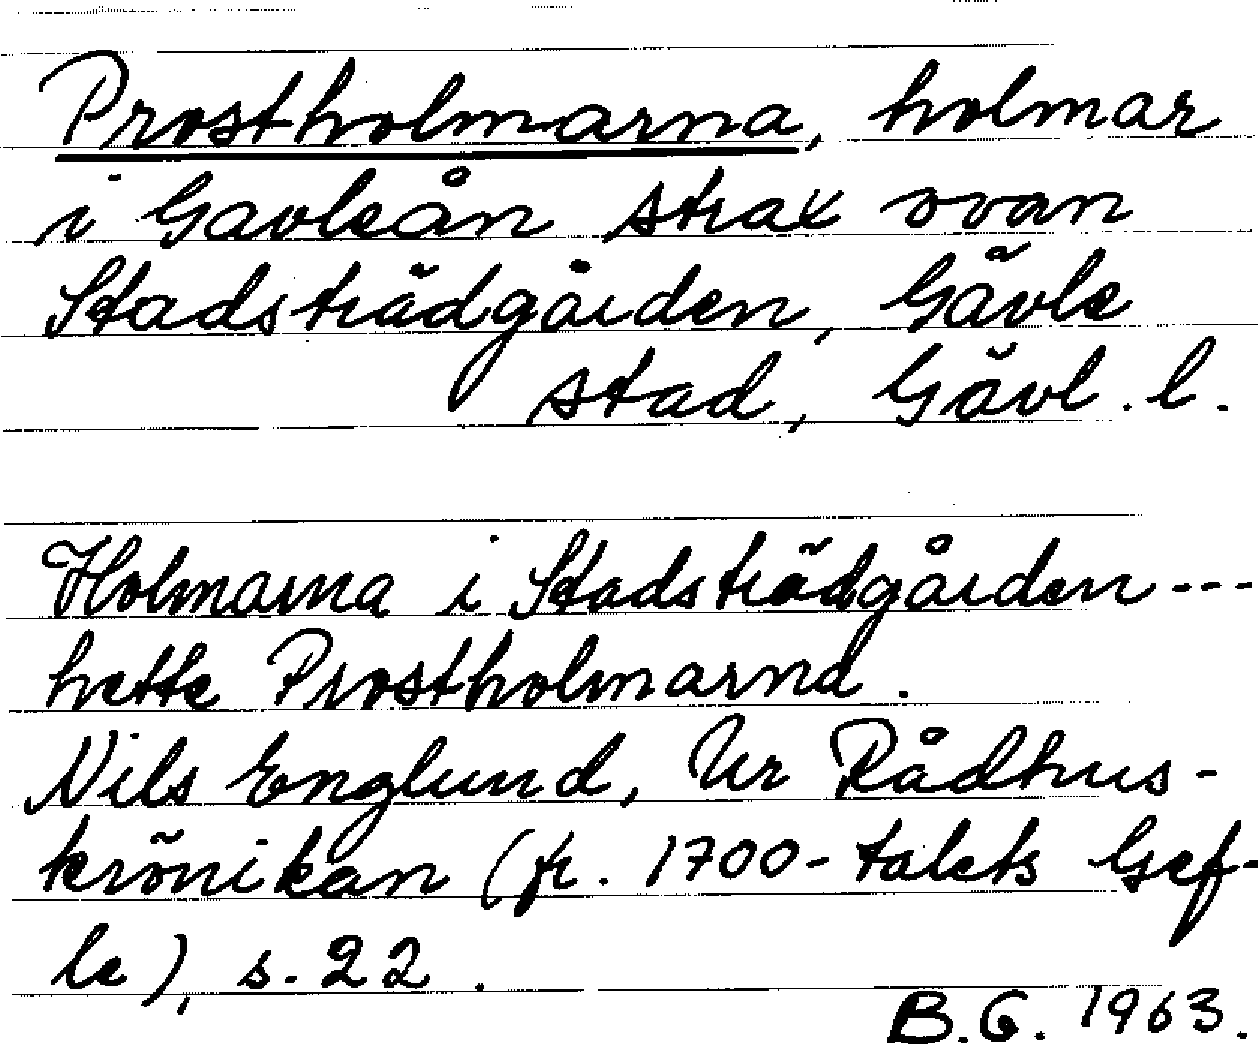 Prostholmarna, holmar
i Gavleån strax ovan
Stadsträdgården, Gävle
stad, Gävl. l.
Holmarna i Stadsträdgården ---
hette Prostholmarna.
Nils Englund, Ur Rådhus-
krönikan (fr. 1700-talets Gef-
le), s. 22.
B.G. 1963.